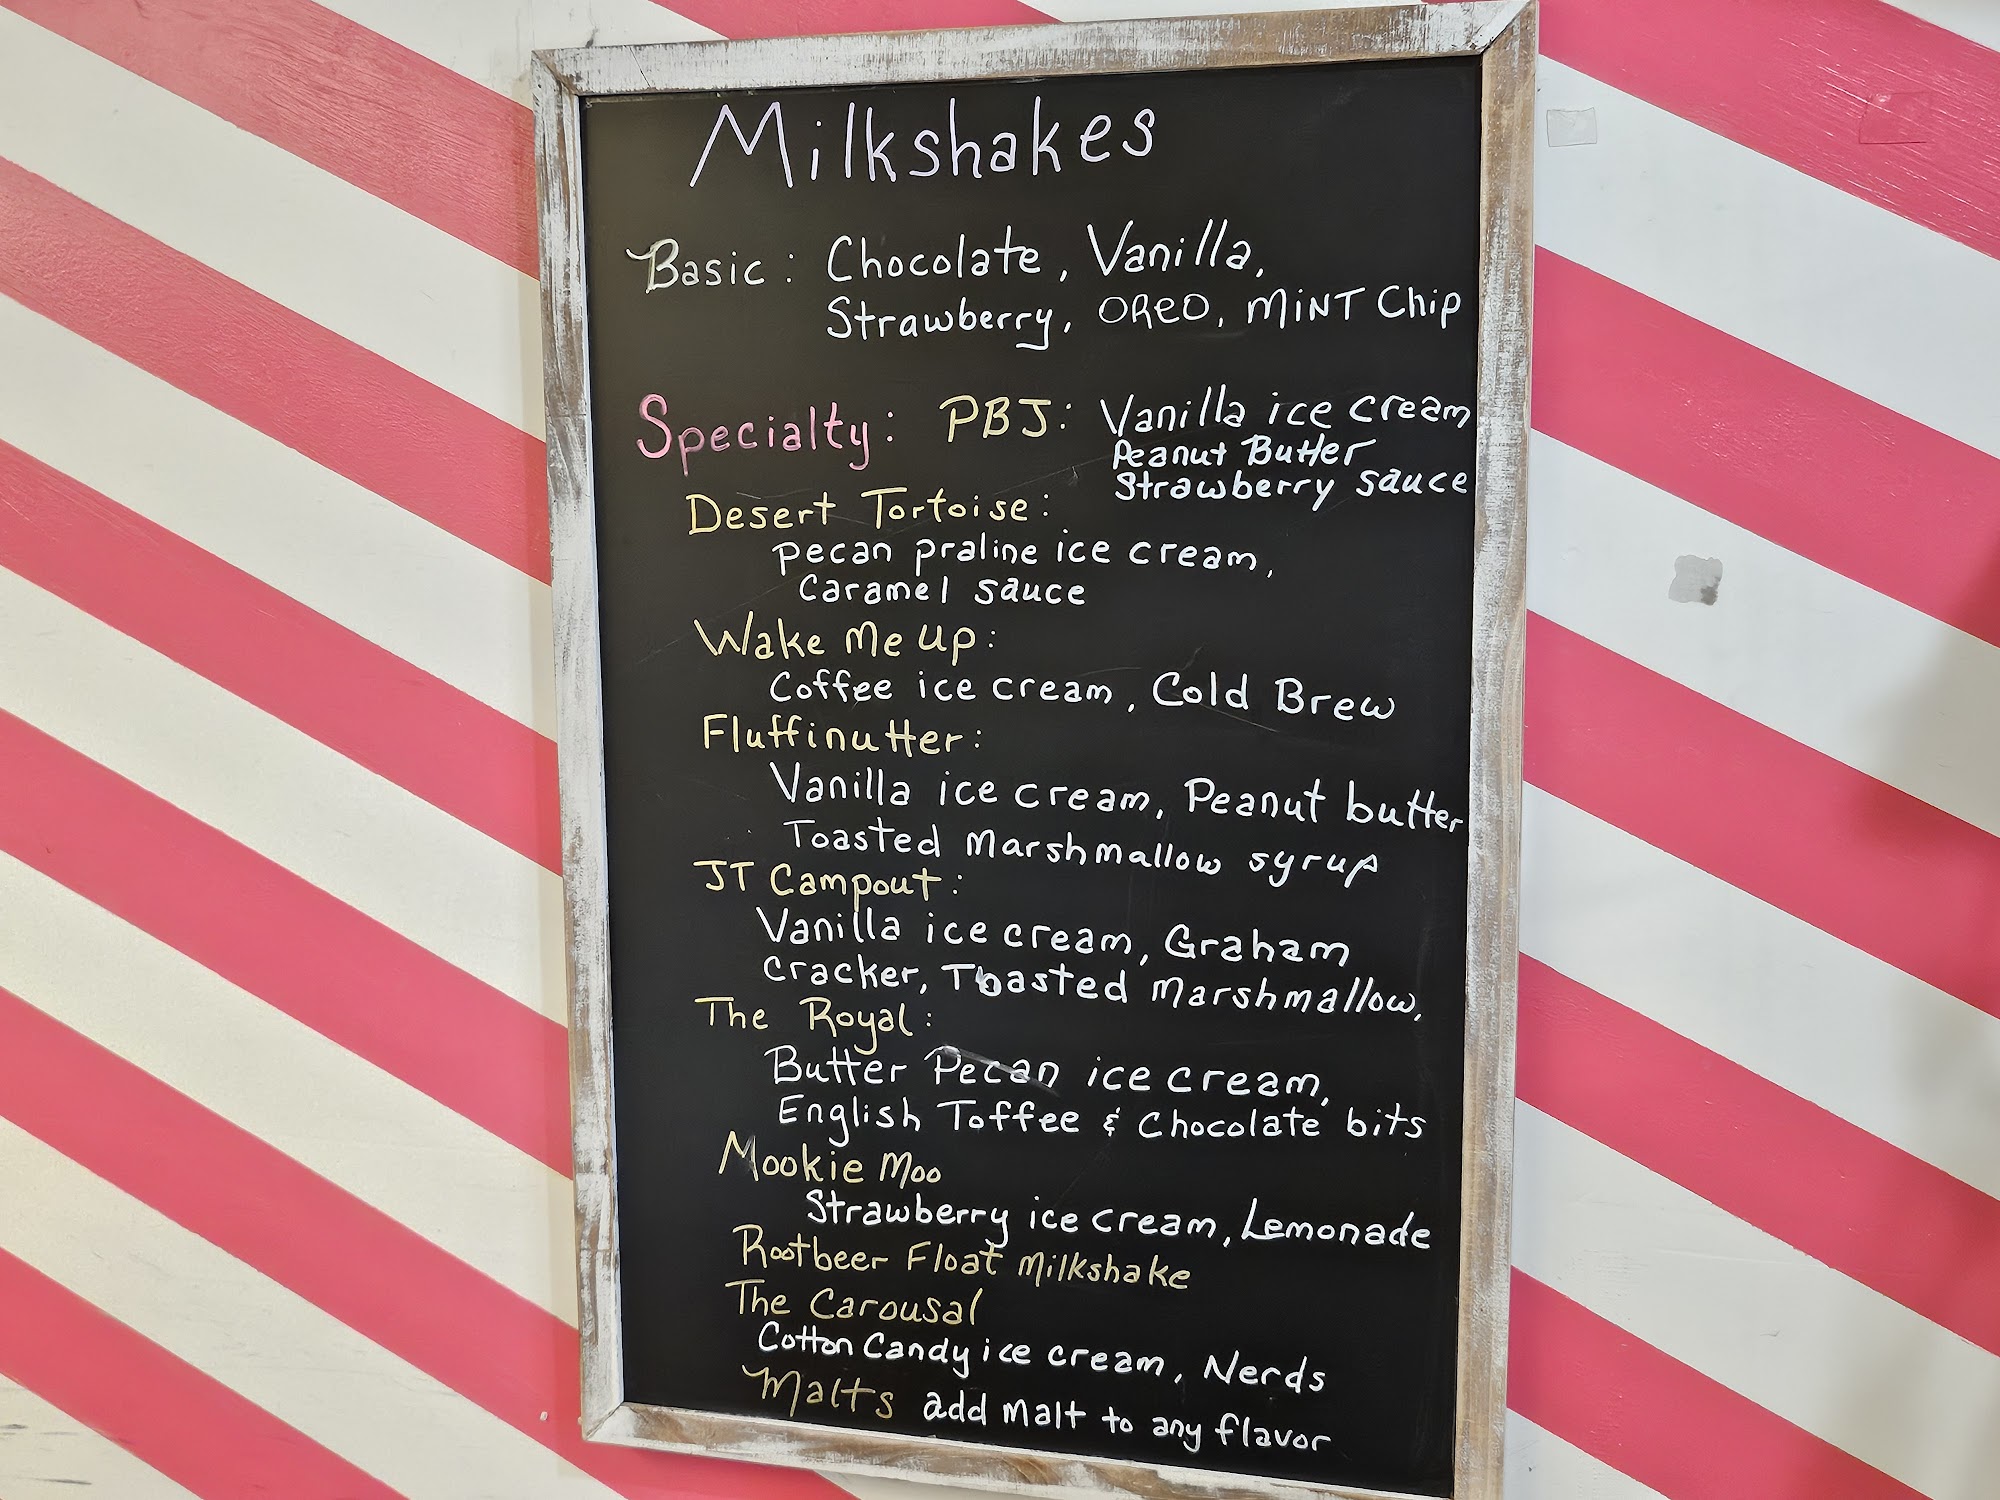 Milkshakes
Basic: Chocolate, Vanilla,
Strawberry, OREO, MINT Chip
Specialty: PBJ: Vanilla ice cream
Peanut Butter
Strawberry sauce
Desert Tortoise:
Pecan praline ice cream,
Caramel sauce
Wake Me Up:
Coffee ice cream, Cold Brew
Fluffinutter:
Vanilla ice cream, Peanut butter
Toasted Marshmallow syrup
JT Campout:
Vanilla ice cream, Graham
Cracker, Toasted Marshmallow,
The Royal:
Butter Pecan ice cream,
English Toffee & Chocolate bits
Mookie Moo
Strawberry ice cream, Lemonade
Rootbeer Float Milkshake
The Carousal
Cotton Candy ice cream, Nerds
Malts add malt to any flavor